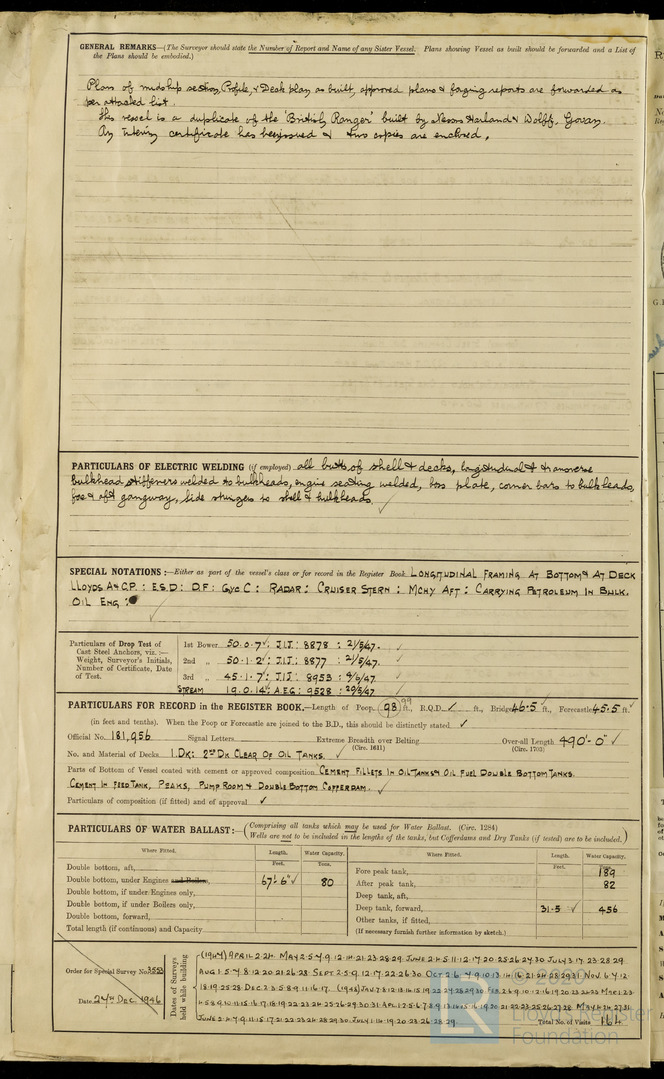 GENERAL REMARKS—(The Surveyor should state the Number of Report and Name of any Sister Vessel. Plans showing Vessel as built should be forwarded and a List of
the Plans should be embodied.)
Plans of midship section, Profile, & Deck plan as built, approved plans & forging reports are forwarded as
per attached list.
This vessel is a duplicate of the 'British Ranger' built by Messrs Harland & Wolff, Govan.
An Interim certificate has been issued & two copies are enclosed.
PARTICULARS OF ELECTRIC WELDING (if employed) all butts of shell & decks, longitudinal & transverse
bulkhead stiffeners welded to bulkheads, engine seating welded, boss plate, corner bars to bulkheads,
fore & aft gangway, side stringers to shell & bulkheads.
SPECIAL NOTATIONS:—Either as part of the vessel's class or for record in the Register Book LONGITUDINAL FRAMING AT BOTTOM & AT DECK
LLOYDS A & C.P. : E.S.D : D.F : GYO C : RADAR : CRUISER STERN : MCHY AFT : CARRYING PETROLEUM IN BULK.
OIL ENG :
Particulars of Drop Test of
Cast Steel Anchors, viz. :—
Weight, Surveyor's Initials,
Number of Certificate, Date
of Test.
1st Bower 50.0.7 : J.I.J : 8878 : 2/5/47.
2nd ,, 50.1.2 : J.I.J : 8877 : 2/5/47.
3rd ,, 45.1.7 : J.I.J : 8953 :
STREAM 19.0.14 : A.E.G : 9528 :
PARTICULARS FOR RECORD in the REGISTER BOOK.—Length of Poop 98 ft., R.Q.D. ft., Bridge 46.5 ft., Forecastle 45.5 ft.
(in feet and tenths). When the Poop or Forecastle are joined to the B.D., this should be distinctly stated
Official No. 181,956 Signal Letters Extreme Breadth over Belting Over-all Length 490'-0"
(Circ. 1611) (Circ. 1703)
No. and Material of Decks 1.DK: 2nd DK CLEAR OF OIL TANKS.
Parts of Bottom of Vessel coated with cement or approved composition CEMENT FILLETS IN OIL TANKS & OIL FUEL DOUBLE BOTTOM TANKS.
CEMENT IN FEED TANK, PEAKS, PUMP ROOM & DOUBLE BOTTOM COFFERDAM.
Particulars of composition (if fitted) and of approval
PARTICULARS OF WATER BALLAST:— (Comprising all tanks which may be used for Water Ballast. (Circ. 1284)
Wells are not to be included in the lengths of the tanks, but Cofferdams and Dry Tanks (if tested) are to be included.)
Where Fitted. Length. Water Capacity. Where Fitted. Length. Water Capacity.
Feet. Tons. Feet. Tons.
Double bottom, aft, Fore peak tank, 189
Double bottom, under Engines and Boilers, 67'-6" 80 After peak tank, 82
Double bottom, if under Engines only, Deep tank, aft,
Double bottom, if under Boilers only, Deep tank, forward, 31.5 456
Double bottom, forward, Other tanks, if fitted,
Total length (if continuous) and Capacity (If necessary furnish further information by sketch.)
Order for Special Survey No. 3523
Date 24th Dec. 1946
Dates of Surveys
held while building
Total No. of Visits 164
© 2020
Lloyd's Register
Foundation
LR